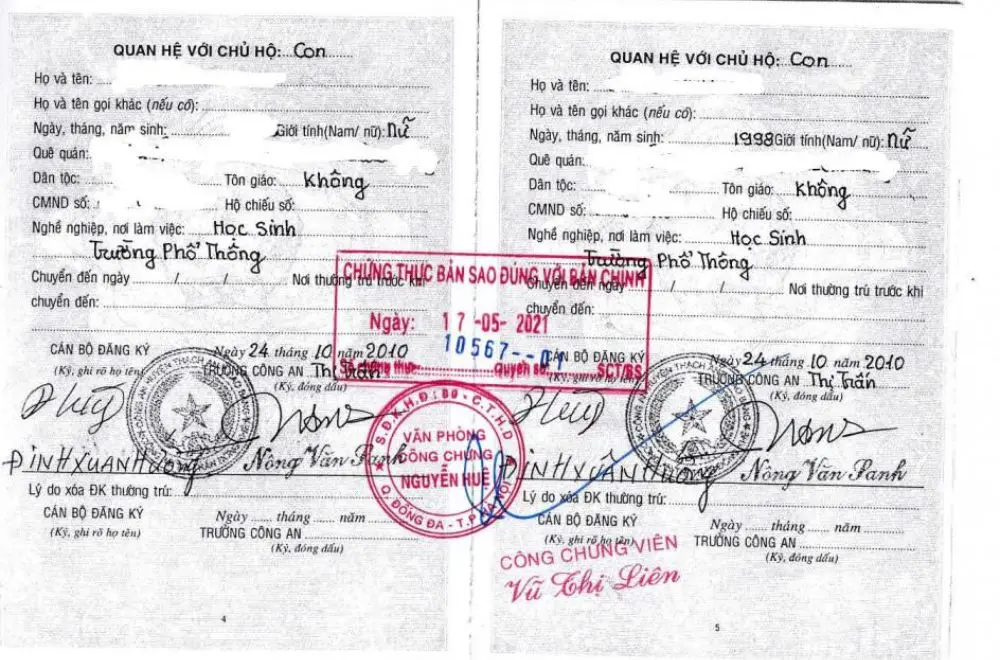 QUAN HỆ VỚI CHỦ HỘ: Con
Họ và tên:
Họ và tên gọi khác (nếu có):
Ngày, tháng, năm sinh: Giới tính(Nam/ nữ): Nữ
Quê quán:
Dân tộc: Tôn giáo: Không
CMND số: Hộ chiếu số:
Nghề nghiệp, nơi làm việc: Học Sinh
Trường Phổ Thông
Chuyển đến ngày / / Nơi thường trú trước khi
chuyển đến:
CÁN BỘ ĐĂNG KÝ
(Ký, ghi rõ họ tên)
Ngày 24 tháng 10 năm 2010
TRƯỞNG CÔNG AN Thị Trấn
(Ký, đóng dấu)
ĐINH XUÂN HƯƠNG Nông Văn Panh
Lý do xóa ĐK thường trú:
CÁN BỘ ĐĂNG KÝ
(Ký, ghi rõ họ tên)
Ngày ...... tháng ...... năm
TRƯỞNG CÔNG AN
(Ký, đóng dấu)
4
CHỨNG THỰC BẢN SAO ĐÚNG VỚI BẢN CHÍNH
Ngày: 17-05-2021
10567--01
Số chứng thực Quyển số SCT/BS
S.Đ.K.H.Đ: 89 - C.T.H.D
VĂN PHÒNG
CÔNG CHỨNG
NGUYỄN HUỆ
Q. ĐỐNG ĐA - T.P HÀ NỘI
QUAN HỆ VỚI CHỦ HỘ: Con
Họ và tên:
Họ và tên gọi khác (nếu có):
Ngày, tháng, năm sinh: 1998 Giới tính(Nam/ nữ): Nữ
Quê quán:
Dân tộc: Tôn giáo: Không
CMND số: Hộ chiếu số:
Nghề nghiệp, nơi làm việc: Học Sinh
Trường Phổ Thông
Chuyển đến ngày / / Nơi thường trú trước khi
chuyển đến:
CÁN BỘ ĐĂNG KÝ
(Ký, ghi rõ họ tên)
Ngày 24 tháng 10 năm 2010
TRƯỞNG CÔNG AN Thị Trấn
(Ký, đóng dấu)
ĐINH XUÂN HƯƠNG Nông Văn Panh
Lý do xóa ĐK thường trú:
CÁN BỘ ĐĂNG KÝ
(Ký, ghi rõ họ tên)
Ngày ...... tháng ...... năm
TRƯỞNG CÔNG AN
(Ký, đóng dấu)
CÔNG CHỨNG VIÊN
Vũ Thị Liên
5